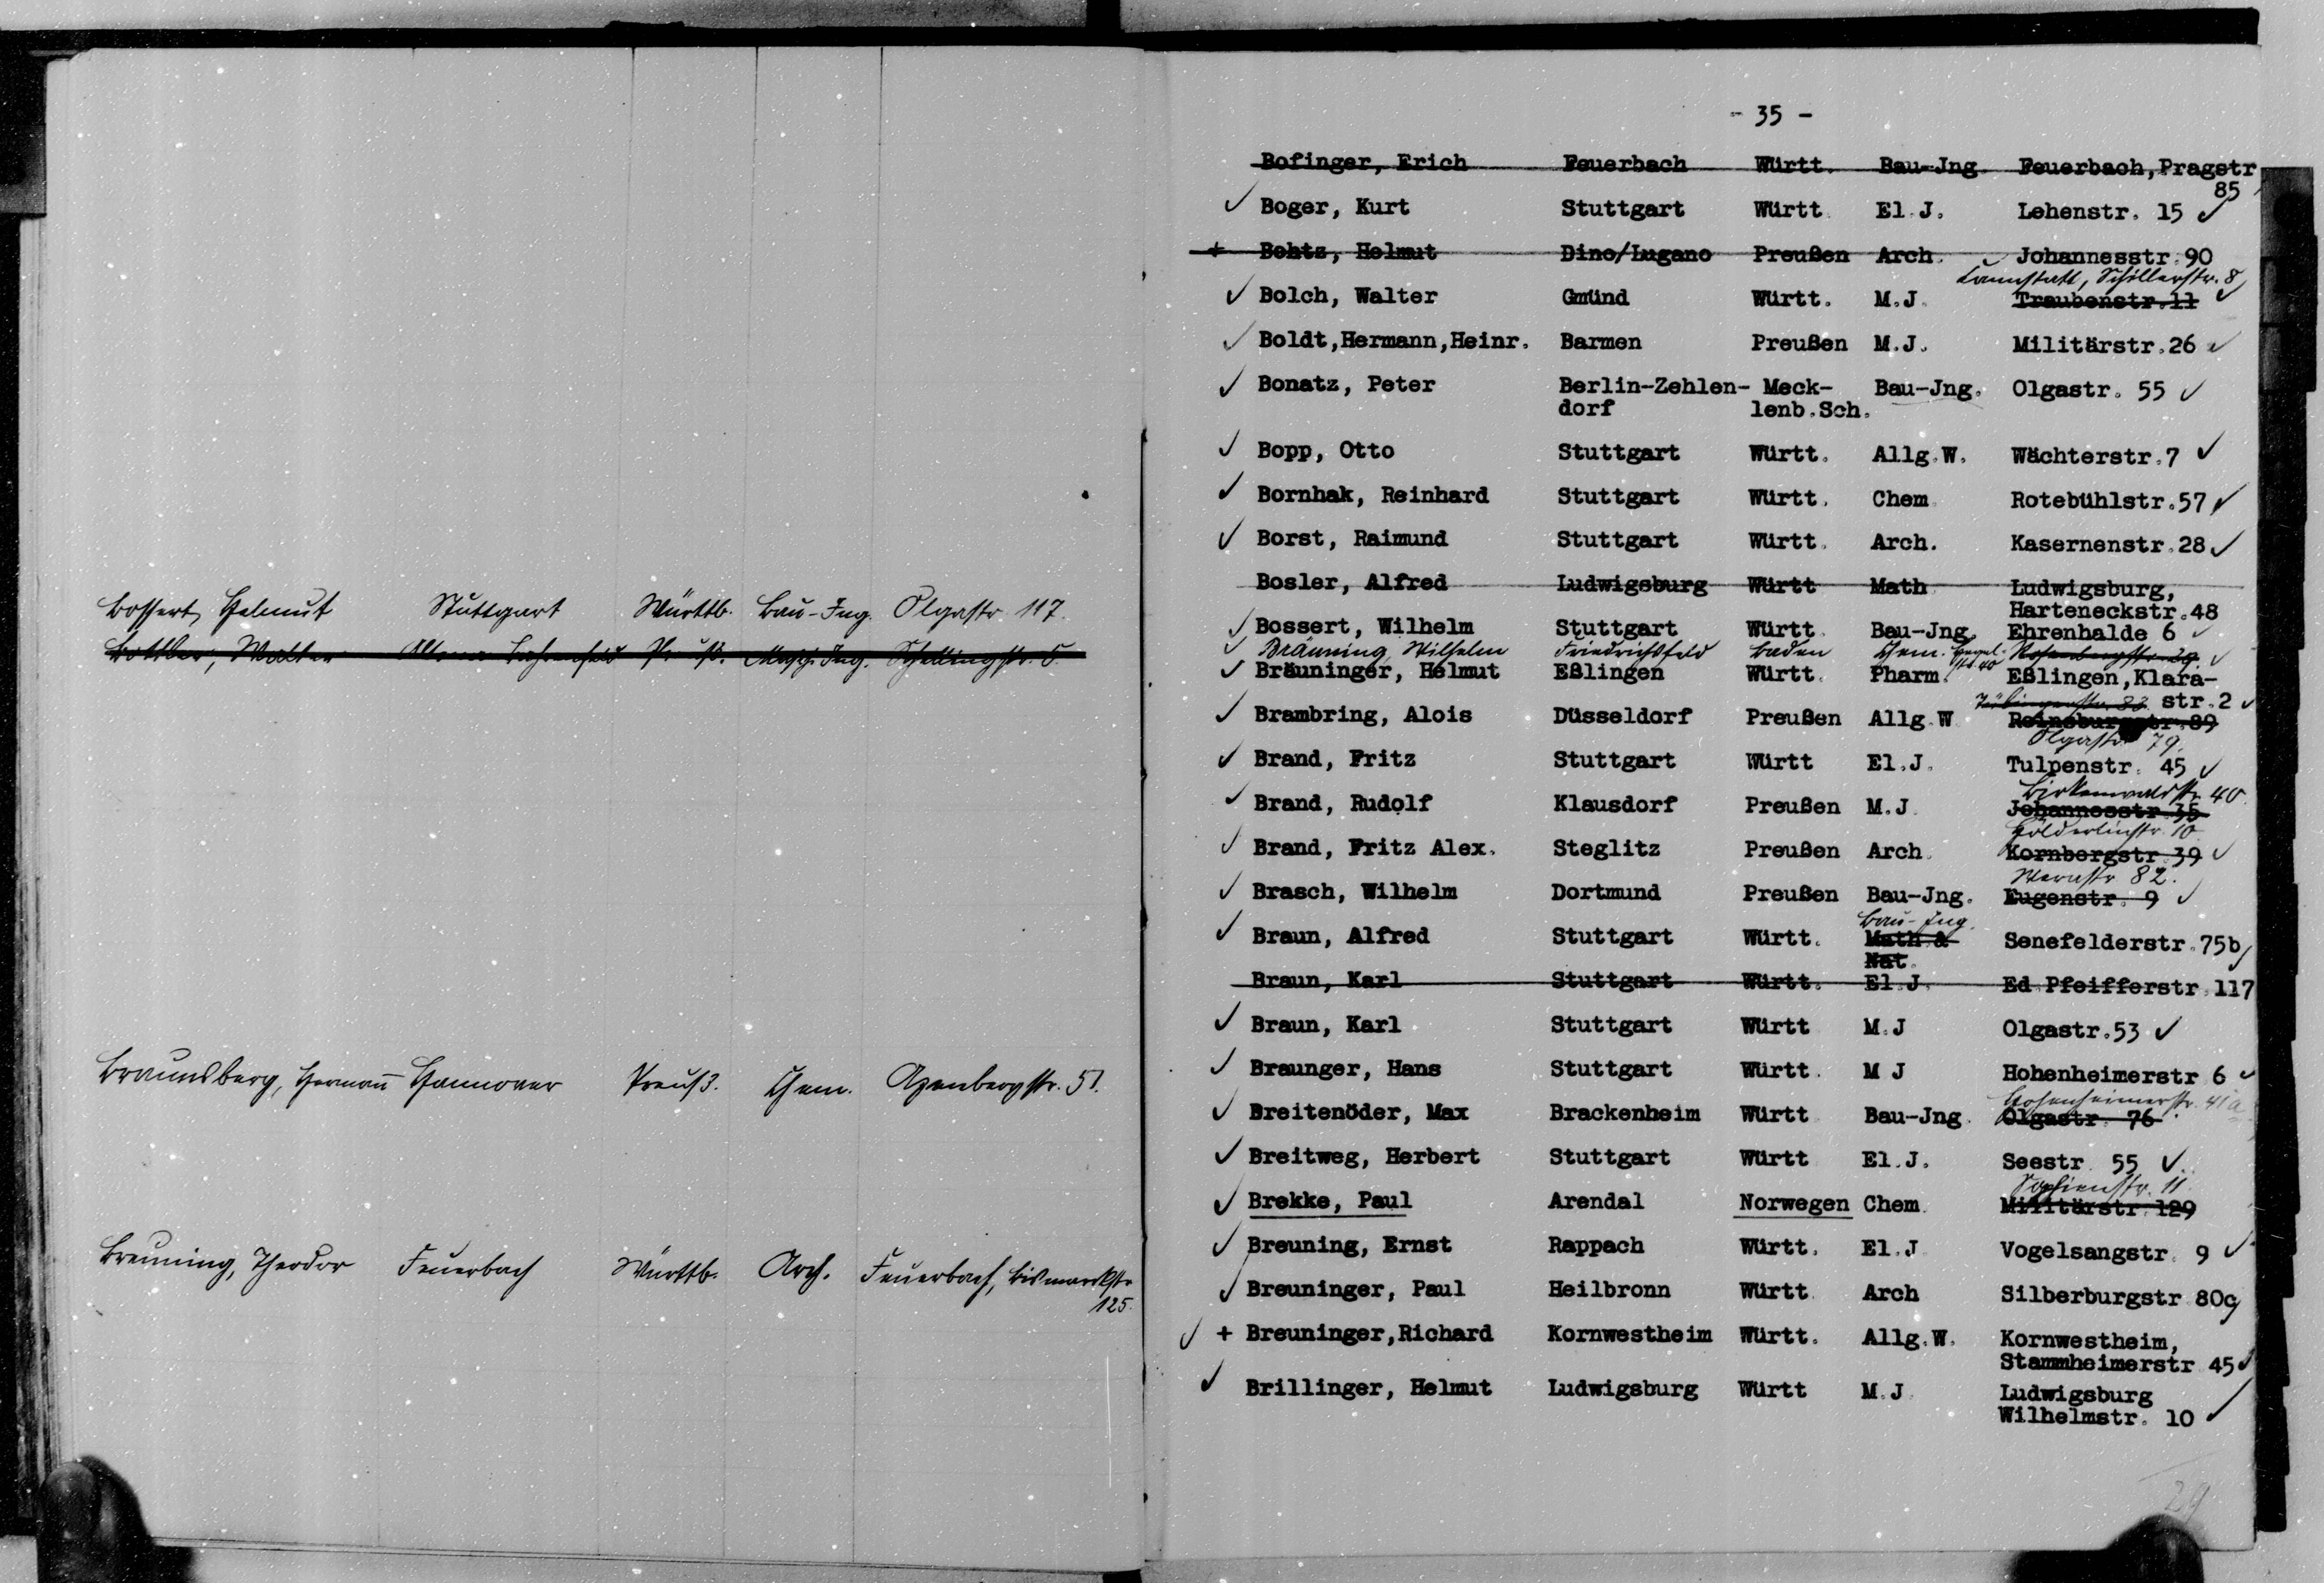 Bossert, Helmut Stuttgart Württb. Bau-Ing. Olgastr. 117.
Walter Masch. Ing. Schellingstr. 5.
Braunsberg, Hermann Hannover Preuß. Chem. Azenbergstr. 51.
Breuning, Theodor Feuerbach Württb. Arch. Feuerbach, Bismarckstr.
125.
- 35 -
Bofinger, Erich Feuerbach Württ. Bau-Jng. Feuerbach, Pragstr
85
✓ Boger, Kurt Stuttgart Württ. El.J. Lehenstr. 15 ✓
+ Bohtz, Helmut Dino/Lugano Preußen Arch. Johannesstr. 90
Cannstatt, Schillerstr. 8
✓ Bolch, Walter Gmünd Württ. M.J. Traubenstr. 11 ✓
✓ Boldt, Hermann, Heinr. Barmen Preußen M.J. Militärstr. 26 ✓
✓ Bonatz, Peter Berlin-Zehlen- Meck- Bau-Jng. Olgastr. 55 ✓
dorf lenb.Sch.
✓ Bopp, Otto Stuttgart Württ. Allg.W. Wächterstr. 7 ✓
✓ Bornhak, Reinhard Stuttgart Württ. Chem. Rotebühlstr. 57 ✓
✓ Borst, Raimund Stuttgart Württ. Arch. Kasernenstr. 28 ✓
Bosler, Alfred Ludwigsburg Württ Math Ludwigsburg,
Harteneckstr. 48
✓ Bossert, Wilhelm Stuttgart Württ. Bau-Jng. Ehrenhalde 6 ✓
✓ Bräuning, Wilhelm Friedrichsfeld Baden Chem. Hegel- Rosenbergstr. 29. ✓
str. 40
✓ Bräuninger, Helmut Eßlingen Württ. Pharm. Eßlingen, Klara-
Tübingerstr. 83 str. 2 ✓
✓ Brambring, Alois Düsseldorf Preußen Allg.W Reinsburgstr. 89
Olgastr. 79.
✓ Brand, Fritz Stuttgart Württ El.J. Tulpenstr. 45 ✓
Birkenwaldstr. 40.
✓ Brand, Rudolf Klausdorf Preußen M.J. Johannesstr. 35
Hölderlinstr. 10
✓ Brand, Fritz Alex. Steglitz Preußen Arch. Kornbergstr. 39 ✓
82.
✓ Brasch, Wilhelm Dortmund Preußen Bau-Jng. Eugenstr. 9 ✓
Bau-Ing.
✓ Braun, Alfred Stuttgart Württ. Math & Senefelderstr. 75b
Nat.
Braun, Karl Stuttgart Württ. El.J. Ed.Pfeifferstr. 117
✓ Braun, Karl Stuttgart Württ M.J Olgastr. 53 ✓
✓ Braunger, Hans Stuttgart Württ. M J Hohenheimerstr 6 ✓
Hohenheimerstr. 41a
✓ Breitenöder, Max Brackenheim Württ Bau-Jng. Olgastr. 76
✓ Breitweg, Herbert Stuttgart Württ El.J. Seestr. 55 ✓
Sophienstr. 11
✓ Brekke, Paul Arendal Norwegen Chem. Militärstr. 129
✓ Breuning, Ernst Rappach Württ. El.J Vogelsangstr. 9 ✓
✓ Breuninger, Paul Heilbronn Württ. Arch Silberburgstr 80c
✓ + Breuninger, Richard Kornwestheim Württ. Allg.W. Kornwestheim,
Stammheimerstr 45 ✓
✓ Brillinger, Helmut Ludwigsburg Württ M.J. Ludwigsburg
Wilhelmstr. 10 ✓
29